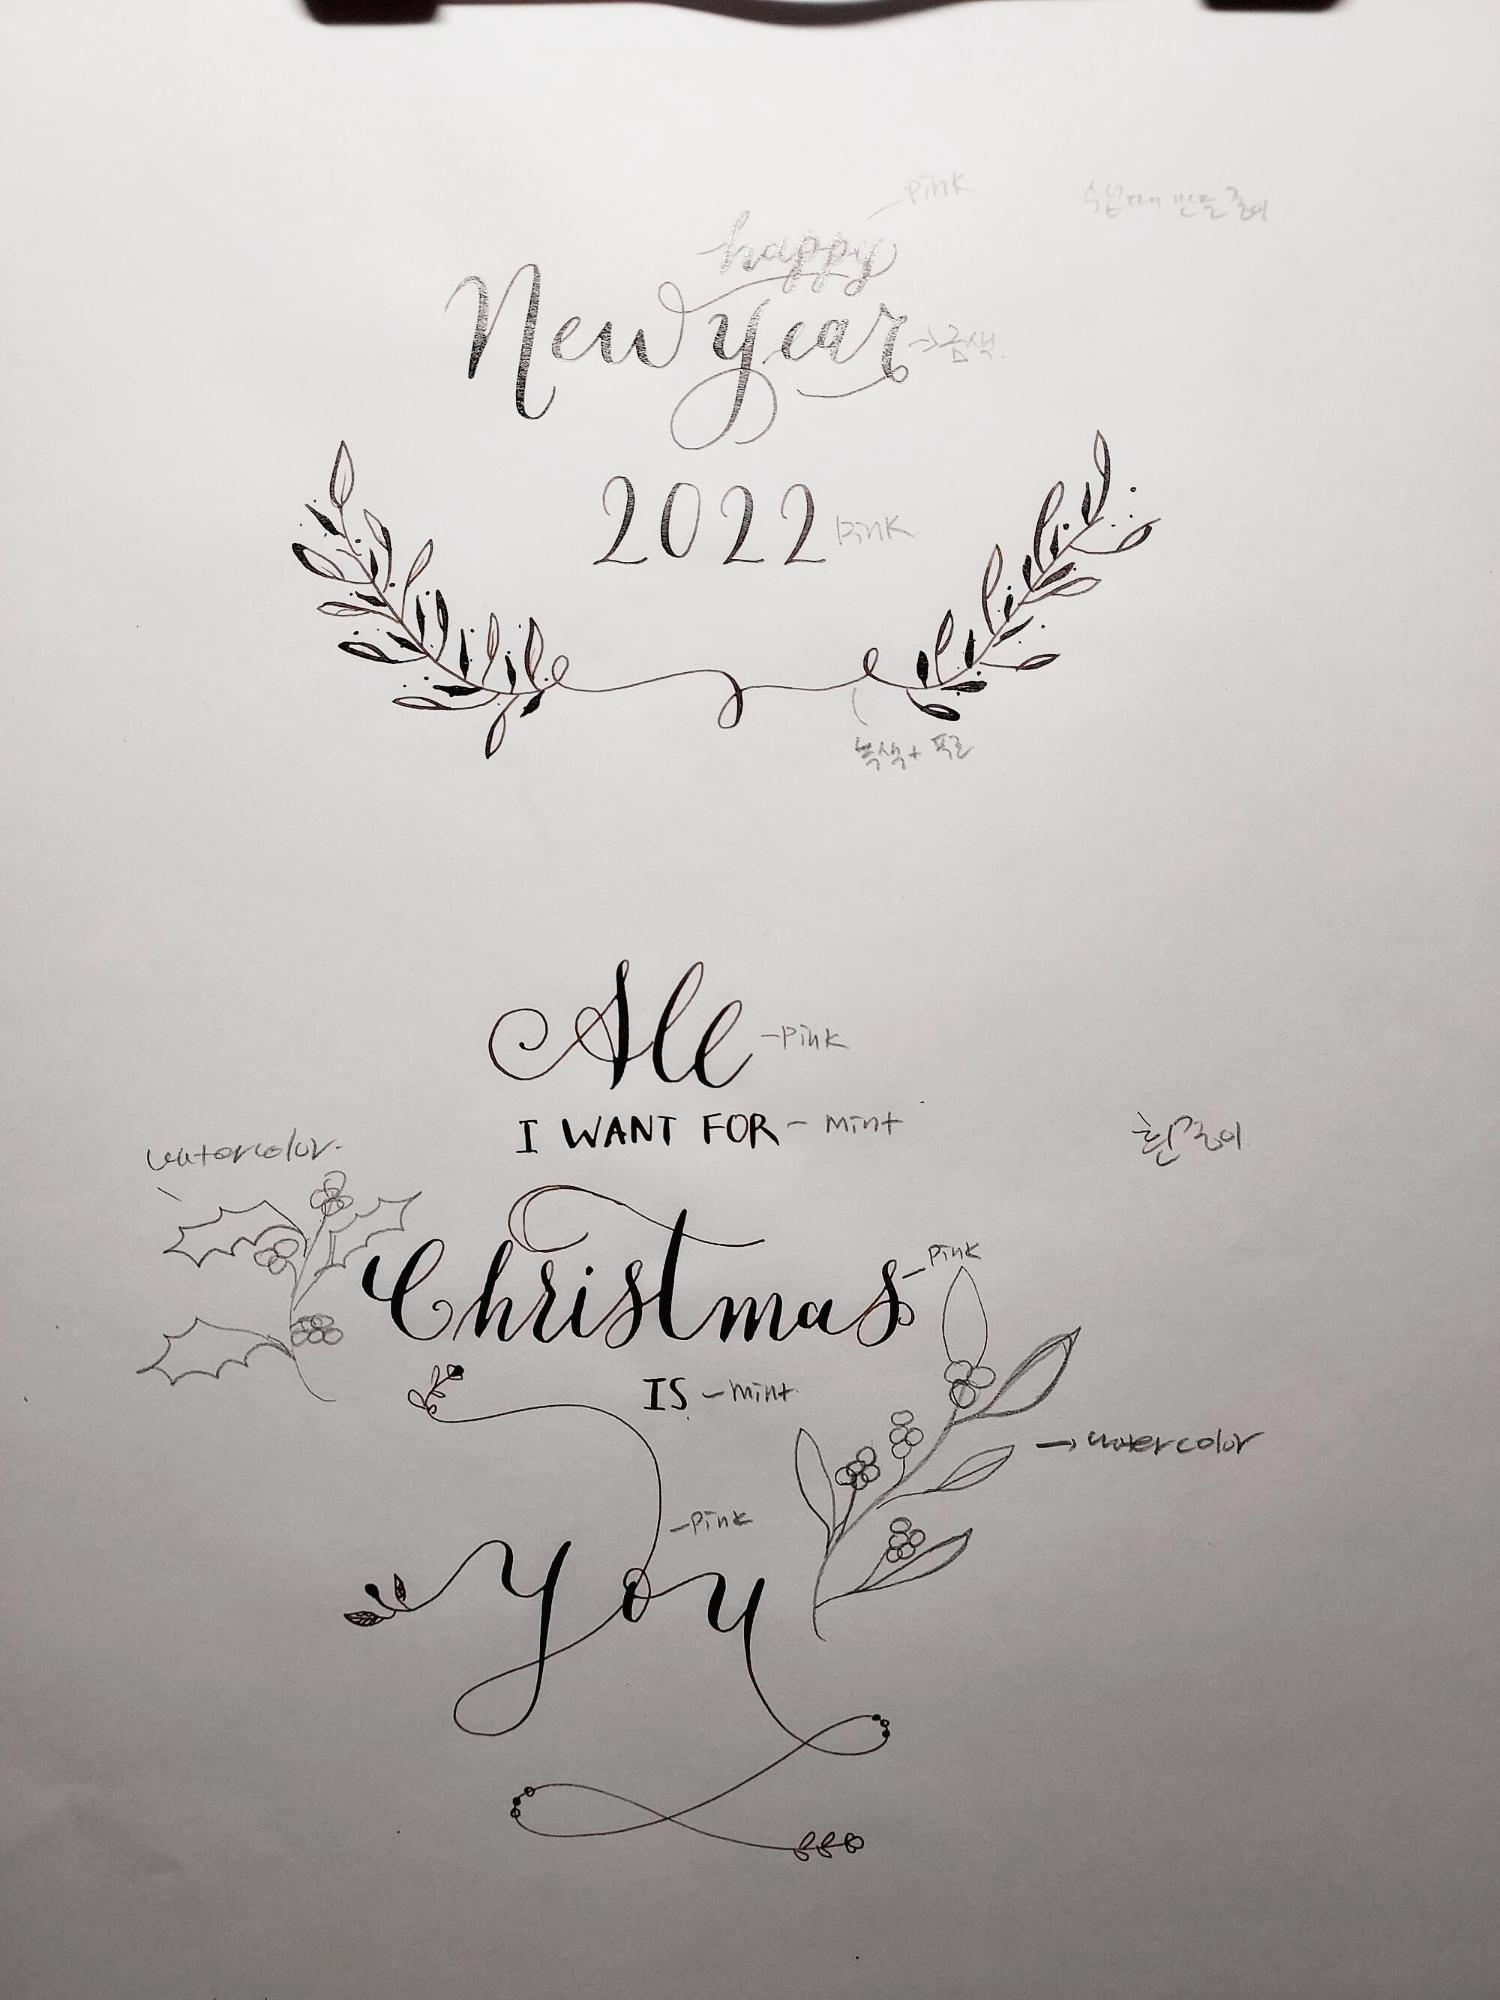 pink
happy
New year →금색
2022 pink
녹색+
All -pink
I WANT FOR - mint
watercolor.
흰종이
Christmas -pink
IS -mint
→ watercolor
-pink
you